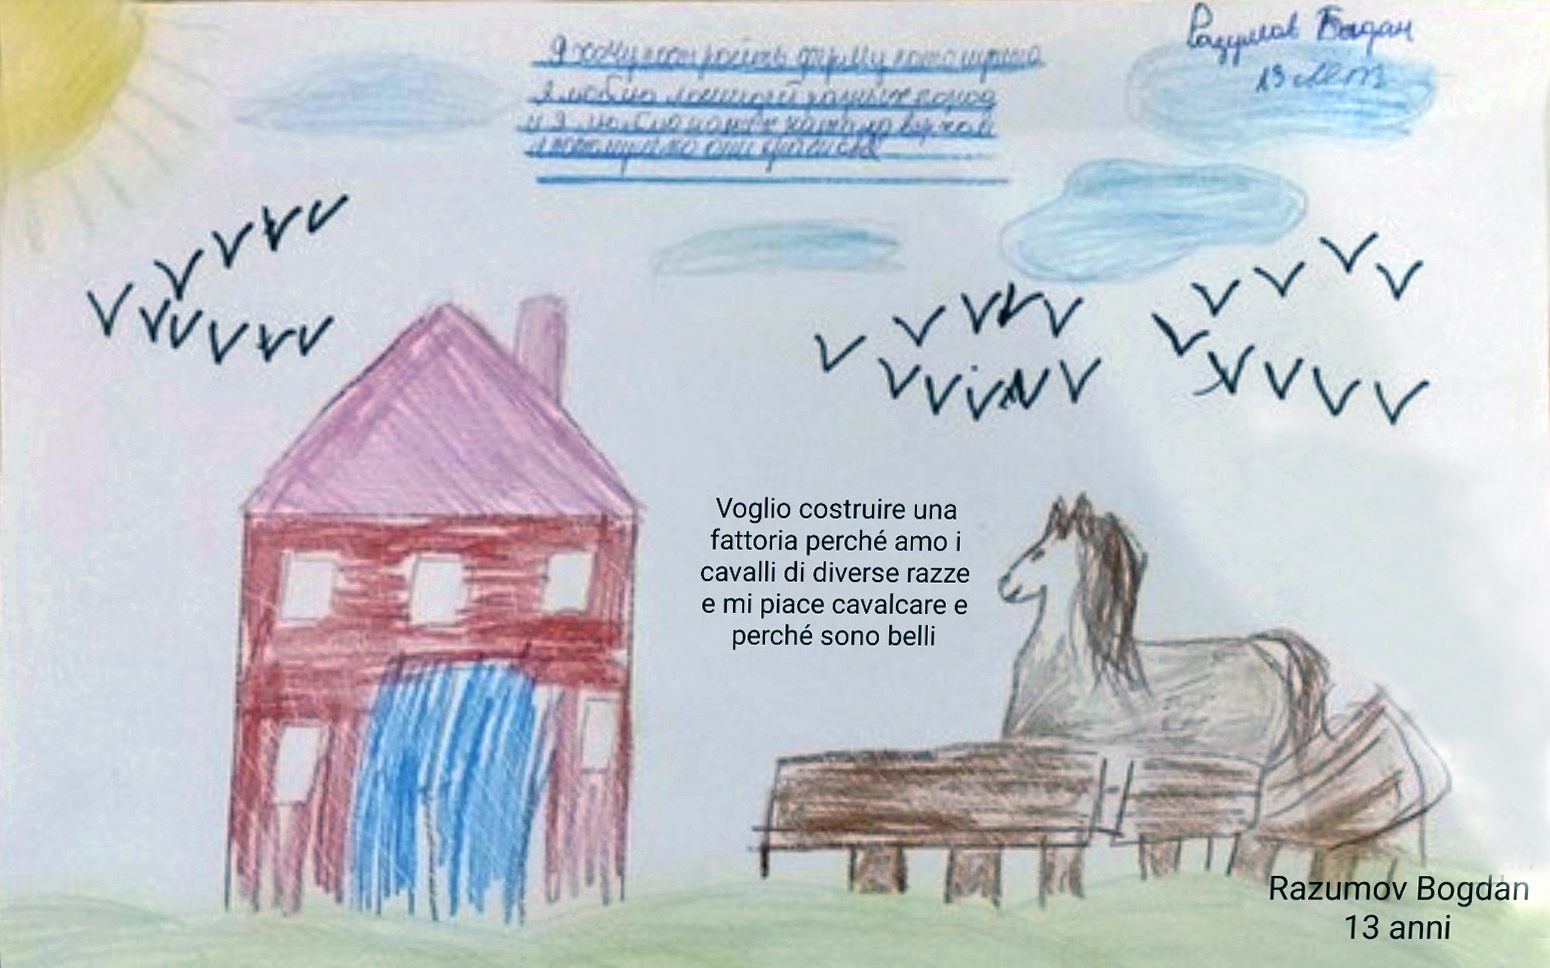 Разумов Богдан
13 лет
Я хочу построить ферму потому что
я люблю лошадей разных пород
и я люблю кататься верхом
и потому что они красивые
Voglio costruire una
fattoria perché amo i
cavalli di diverse razze
e mi piace cavalcare e
perché sono belli
Razumov Bogdan
13 anni